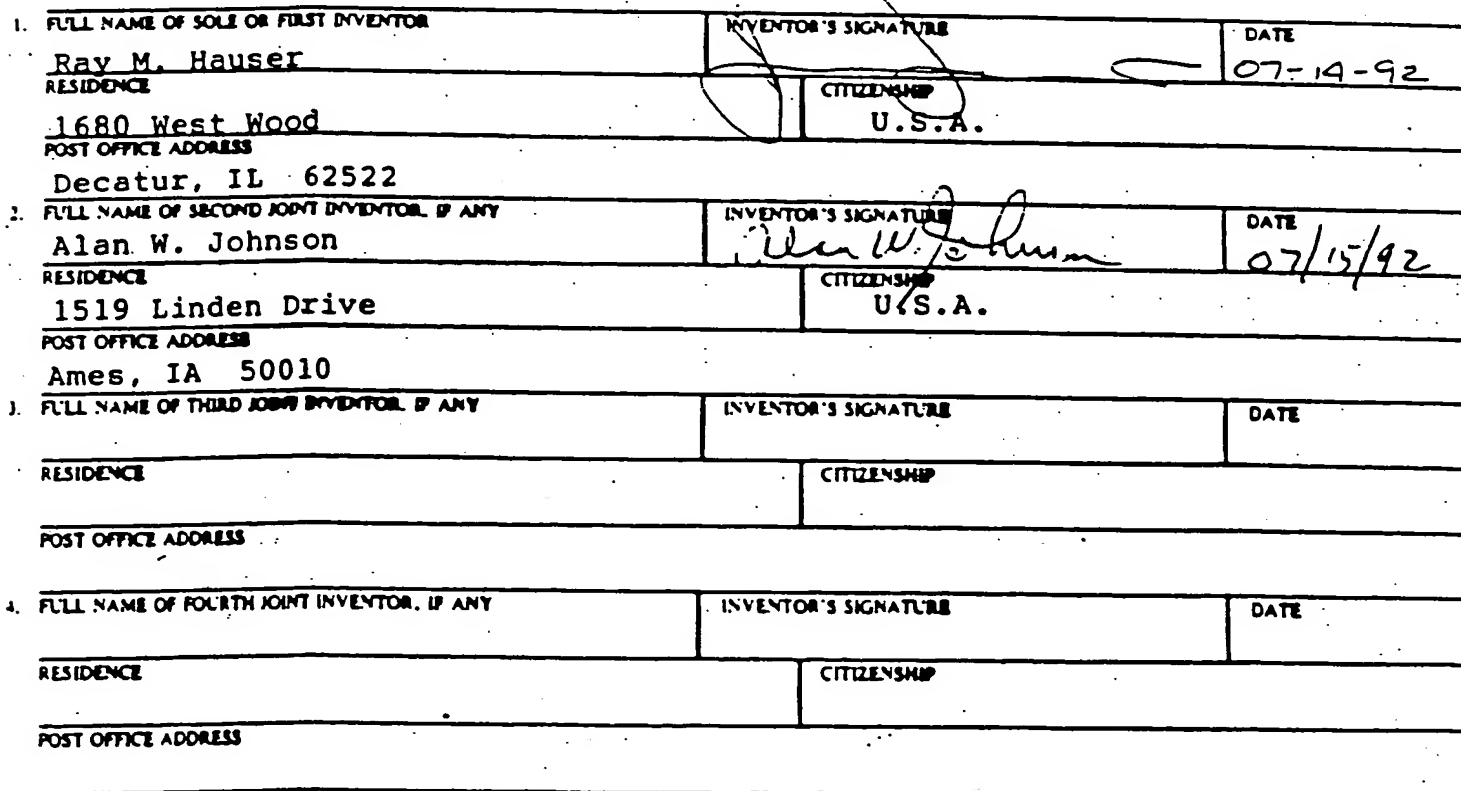 1. FULL NAME OF SOLE OR FIRST INVENTOR INVENTOR'S SIGNATURE DATE
Ray M. Hauser 07-14-92
RESIDENCE CITIZENSHIP
1680 West Wood U.S.A.
POST OFFICE ADDRESS
Decatur, IL 62522
2. FULL NAME OF SECOND JOINT INVENTOR, IF ANY INVENTOR'S SIGNATURE DATE
Alan W. Johnson Alan W. Johnson 07/15/92
RESIDENCE CITIZENSHIP
1519 Linden Drive U.S.A.
POST OFFICE ADDRESS
Ames, IA 50010
3. FULL NAME OF THIRD JOINT INVENTOR, IF ANY INVENTOR'S SIGNATURE DATE
RESIDENCE CITIZENSHIP
POST OFFICE ADDRESS
4. FULL NAME OF FOURTH JOINT INVENTOR, IF ANY INVENTOR'S SIGNATURE DATE
RESIDENCE CITIZENSHIP
POST OFFICE ADDRESS